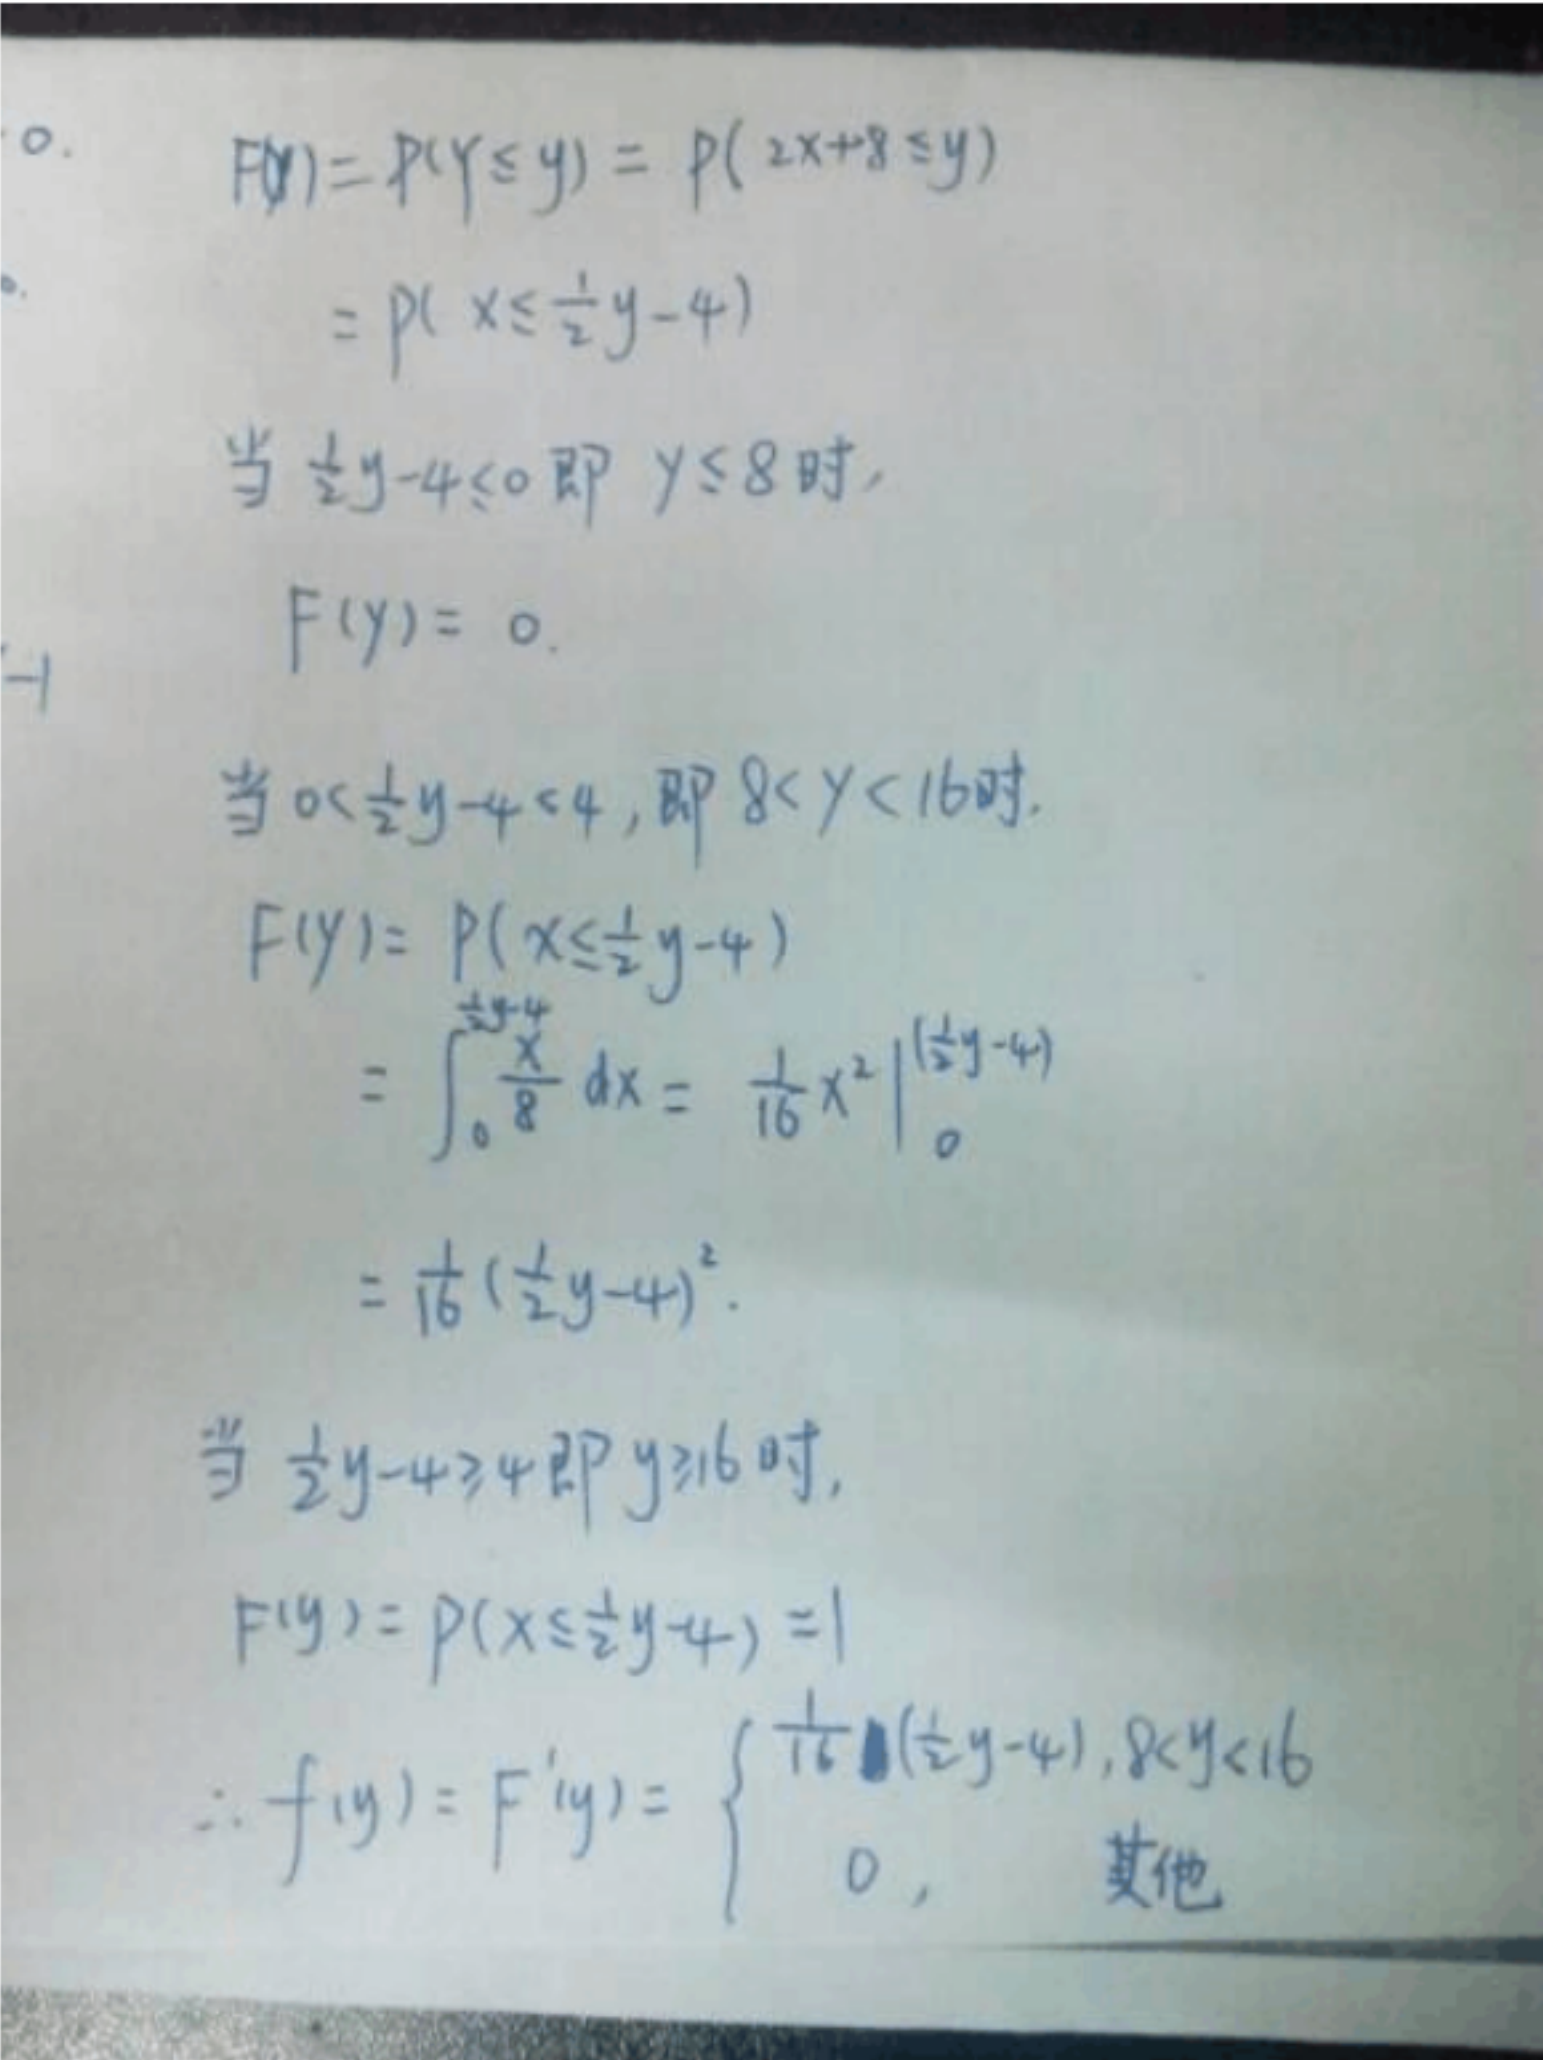 0.
F(y)=P(Y≤y)=P(2x+8≤y)
0.
=P(x≤1/2y-4)
当 1/2y-4≤0 即 y≤8时,
F(y)=0.
-1
当 0<1/2y-4<4, 即 8<y<16时.
F(y)=P(x≤1/2y-4)
=∫₀^(1/2y-4) x/8 dx = 1/16 x² |₀^(1/2y-4)
=1/16(1/2y-4)².
当 1/2y-4≥4 即 y≥16时,
F(y)=P(x≤1/2y-4)=1
∴ f(y)=F'(y)= { 1/16(1/2y-4), 8<y<16
0, 其他